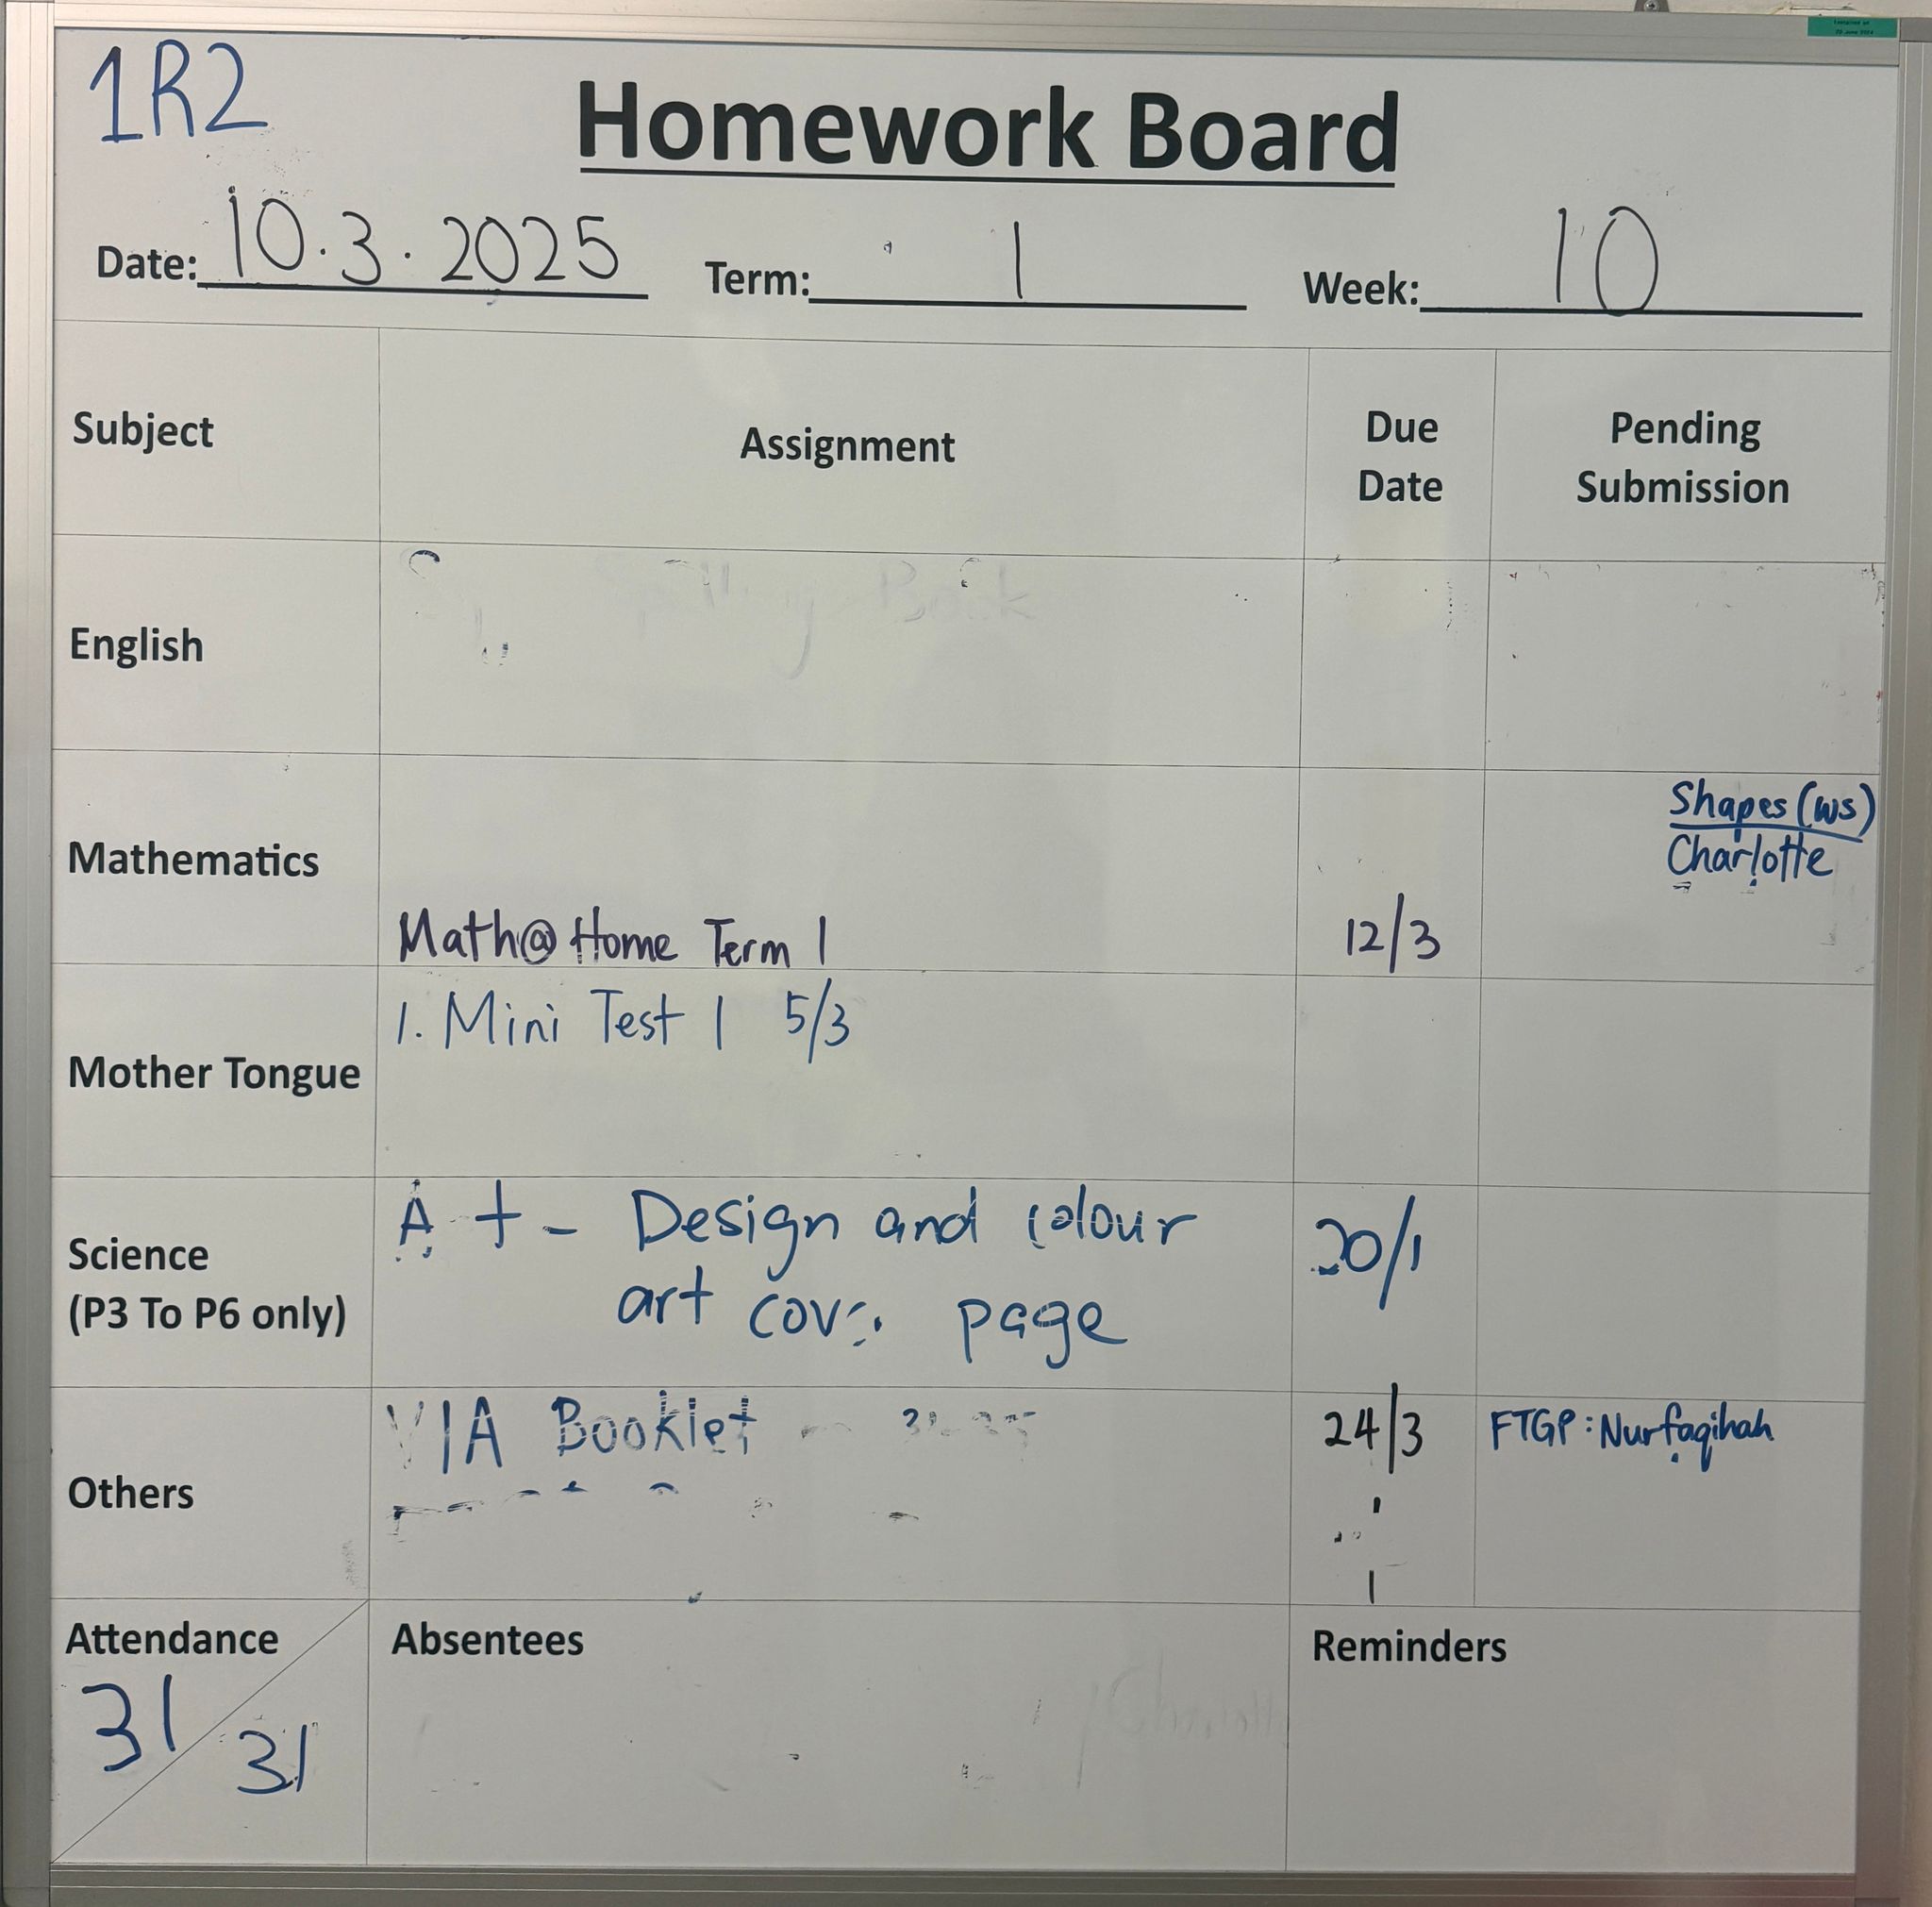 1R2
Homework Board
Date: 10.3.2025 Term: 1 Week: 10
Subject
Assignment
Due
Date
Pending
Submission
English
Mathematics
Math@Home Term 1
12/3
Shapes (ws)
Charlotte
Mother Tongue
1. Mini Test 1 5/3
Science
(P3 To P6 only)
A t - Design and colour
art page
20/1
Others
VIA Booklet
24/3
FTGP: Nurfaqihah
Attendance
31
31
Absentees
Reminders